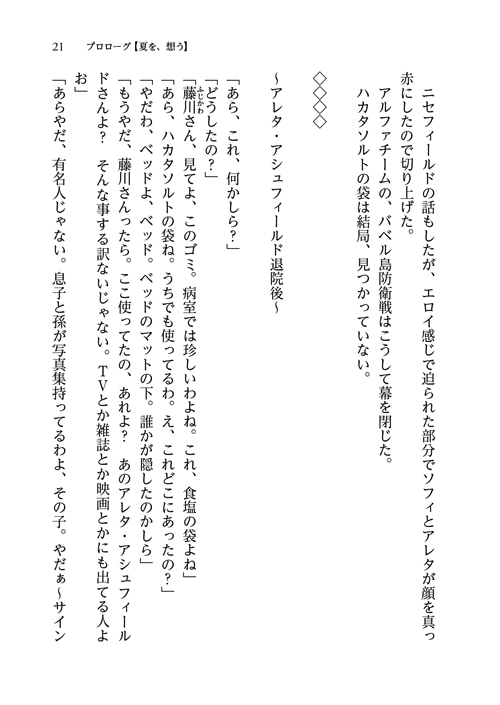 21　プロローグ【夏を、想う】
　ニセフィールドの話もしたが、エロイ感じで迫られた部分でソフィとアレタが顔を真っ
赤にしたので切り上げた。
　アルファチームの、バベル島防衛戦はこうして幕を閉じた。
　ハカタソルトの袋は結局、見つかっていない。
◇◇◇◇
〜アレタ・アシュフィールド退院後〜
「あら、これ、何かしら？」
「どうしたの？」
「藤川さん、見てよ、このゴミ。病室では珍しいわよね。これ、食塩の袋よね」
ふじかわ
「あら、ハカタソルトの袋ね。うちでも使ってるわ。え、これどこにあったの？」
「やだわ、ベッドよ、ベッド。ベッドのマットの下。誰かが隠したのかしら」
「もうやだ、藤川さんったら。ここ使ってたの、あれよ？　あのアレタ・アシュフィール
ドさんよ？　そんな事する訳ないじゃない。ＴＶとか雑誌とか映画とかにも出てる人よ
お」
「あらやだ、有名人じゃない。息子と孫が写真集持ってるわよ、その子。やだぁ〜サイン